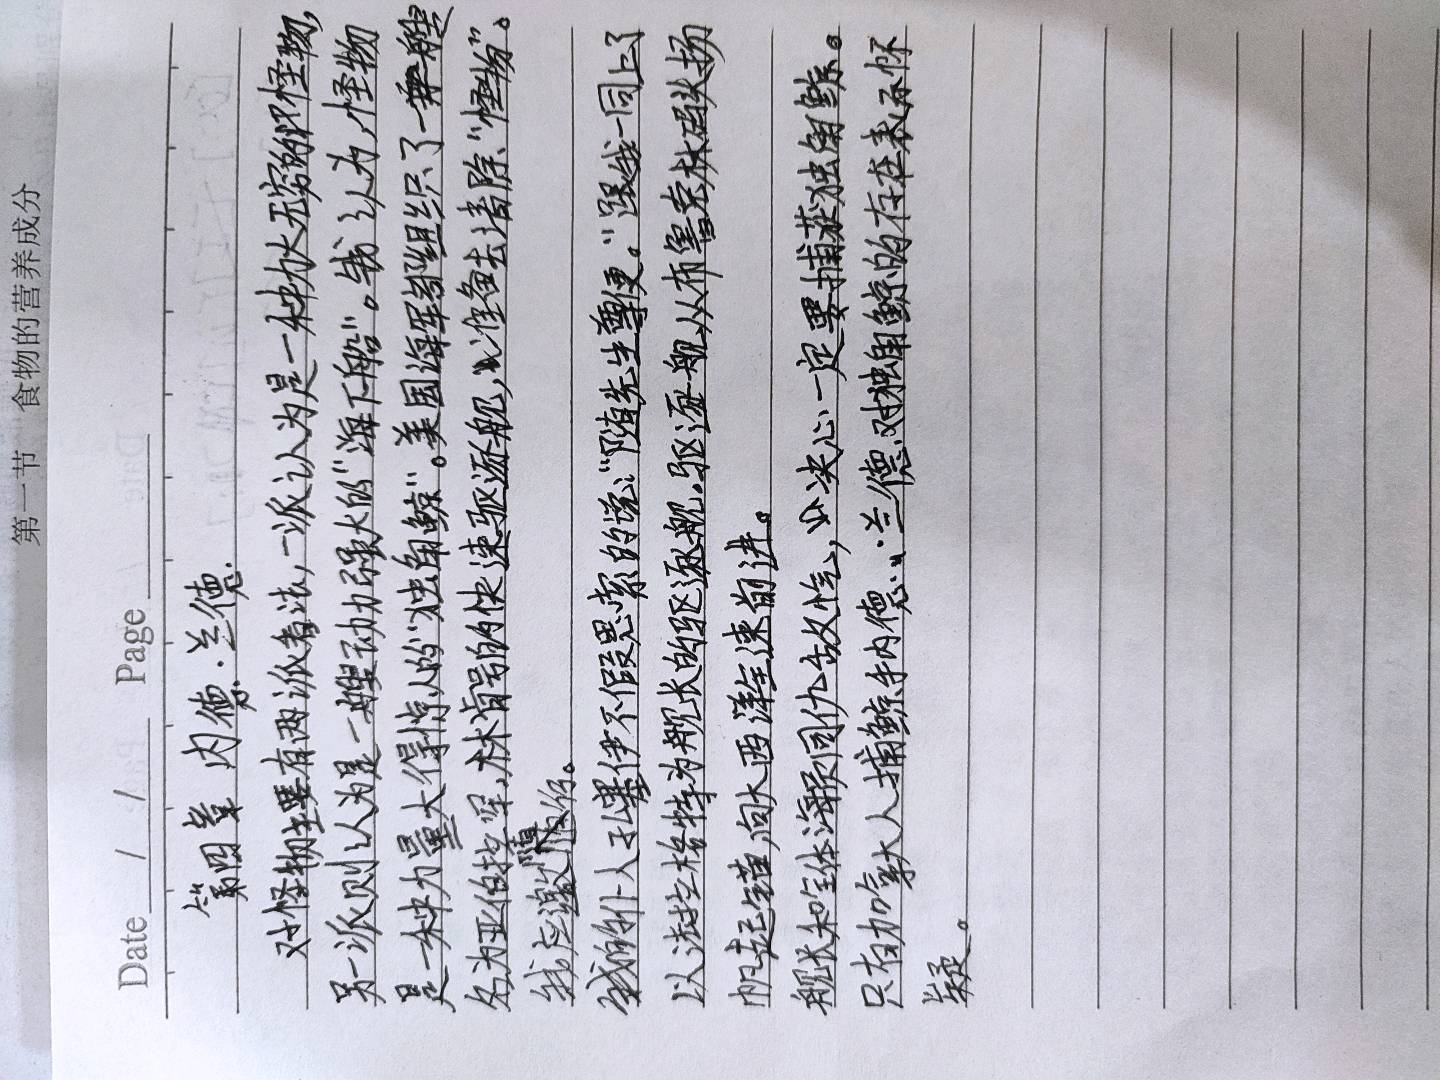 第一节 食物的营养成分
Date / / Page
第四章 内德·兰德
对怪物主要有两派看法，一派认为是一种力大无穷的怪物，
另一派则认为是一艘动力强大的“海下船”。我认为，怪物
是一种力量大得惊人的“独角鲸”。美国海军部组织了一艘
名为亚伯拉罕·林肯号的快速驱逐舰，准备去清除“怪物”。
我应邀随行。
我的仆人孔塞伊不假思索的说：“随先生尊便。”跟我一同上了
以法拉格特为舰长的驱逐舰。驱逐舰从布鲁克林码头扬
帆起锚，向大西洋全速前进。
舰长和全体海员同仇敌忾，决心一定要捕获独角鲸。
只有加拿大人捕鲸手内德·兰德对独角鲸的存在表示怀
疑。